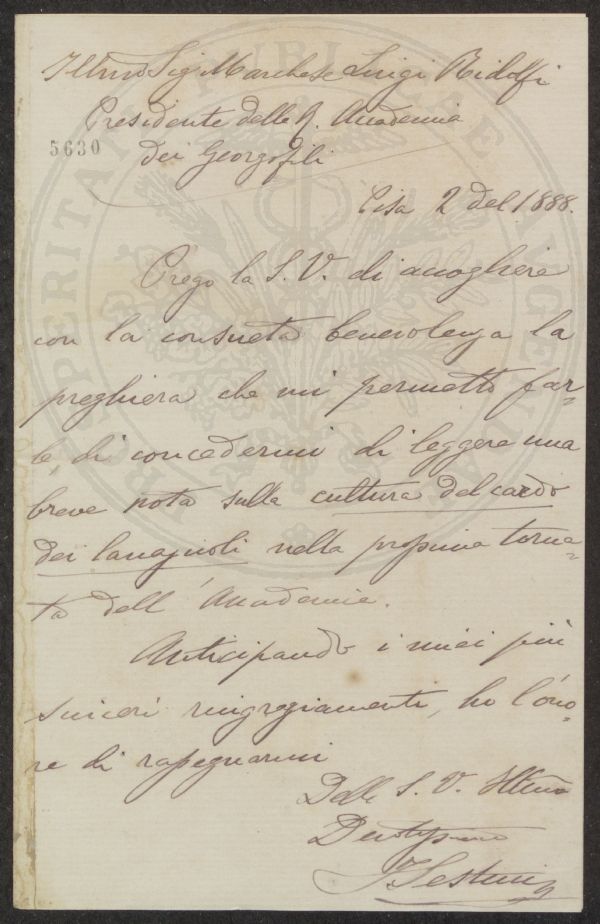 Illmo Sig Marchese Luigi Ridolfi
Presidente della R. Accademia
5630
dei Georgofili
Pisa 2 del 1888.
Prego la S. V. di accogliere
con la consueta benevolenza la
preghiera che mi permetto far-
le, di concedermi di leggere una
breve nota sulla cultura del cardo
dei lanajuoli nella prossima torna-
ta dell'Accademia.
Anticipando i miei più
sinceri ringraziamenti, ho l'ono-
re di rassegnarmi
Della S. V. Illma
Devotissimo
PROSPERITATI PUBLICAE AUGENDAE